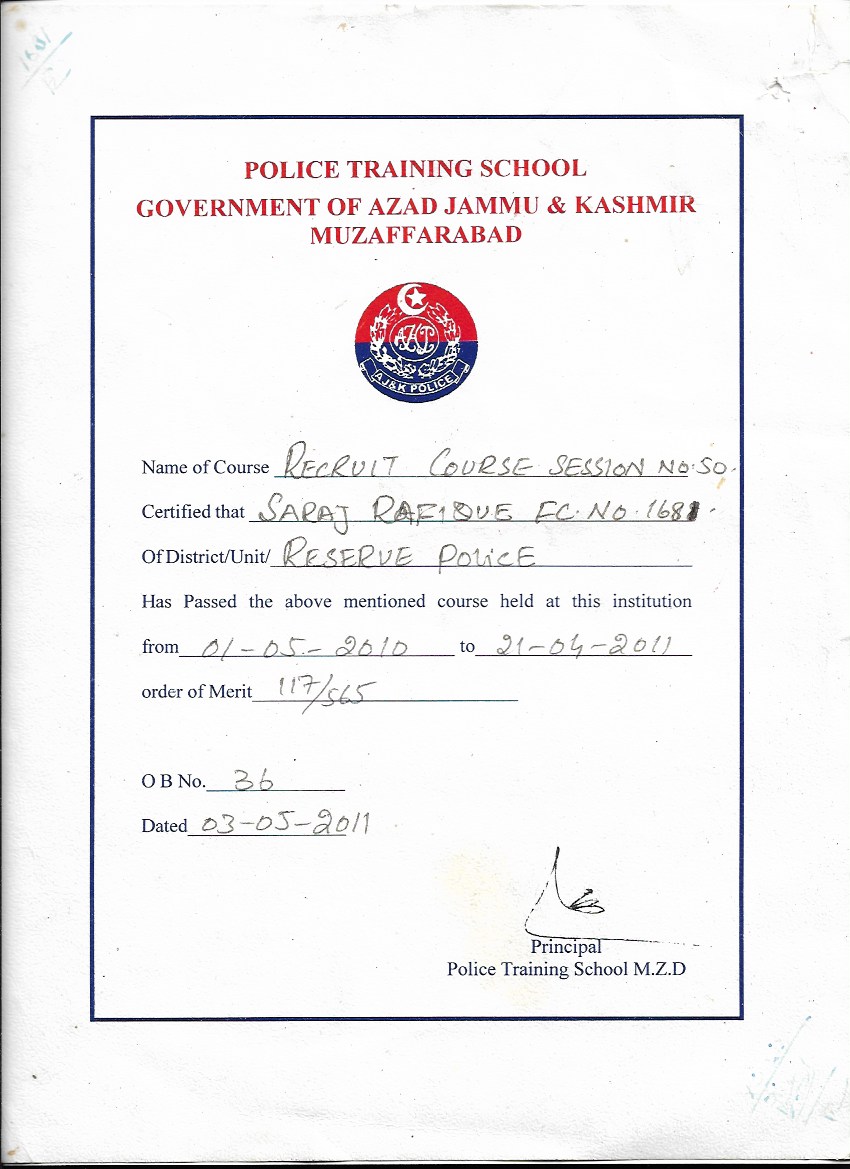 POLICE TRAINING SCHOOL
GOVERNMENT OF AZAD JAMMU & KASHMIR
MUZAFFARABAD
AJ&K POLICE
Name of Course RECRUIT COURSE SESSION NO. 50.
Certified that SARAJ RAFIQUE FC. NO. 1681.
Of District/Unit/ RESERVE POLICE
Has Passed the above mentioned course held at this institution
from 01-05-2010 to 21-04-2011
order of Merit 117/565
O B No. 36
Dated 03-05-2011
Principal
Police Training School M.Z.D